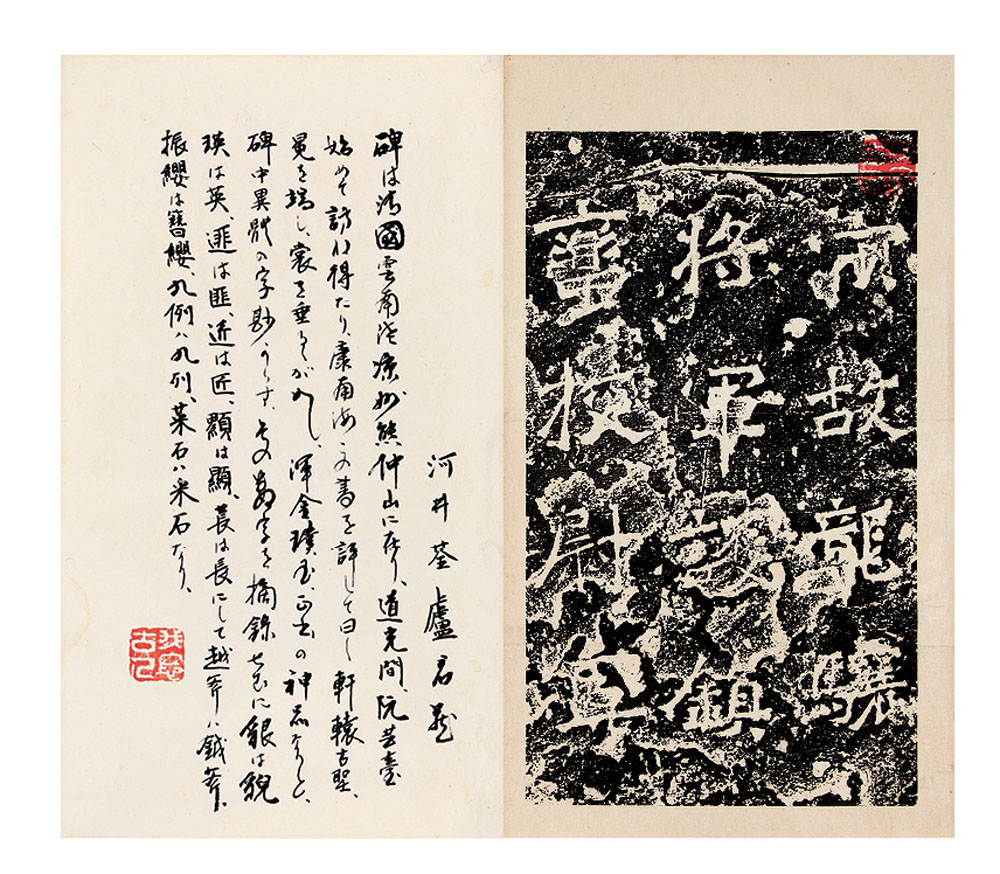 宋故龍驤
將軍護鎮
蠻校尉寧
河井荃廬君藏
碑は清國雲南陸涼州蔡仲山に在り、道光間、阮芸臺
始めて訪ひ得たり、康南海之書を評して曰く軒轅古聖、
冕を端し、裳を垂るゝがごとし、渾金璞玉、正書の神品なりと、
碑中異體の字尠からず、その數字を摘錄せむに貇は貌
瑛は英、遚は匪、近は匠、顯は顯、萇は長にして越斧ハ鉞斧、
振纓は簪纓、九例ハ九列、菜石ハ采石なり、